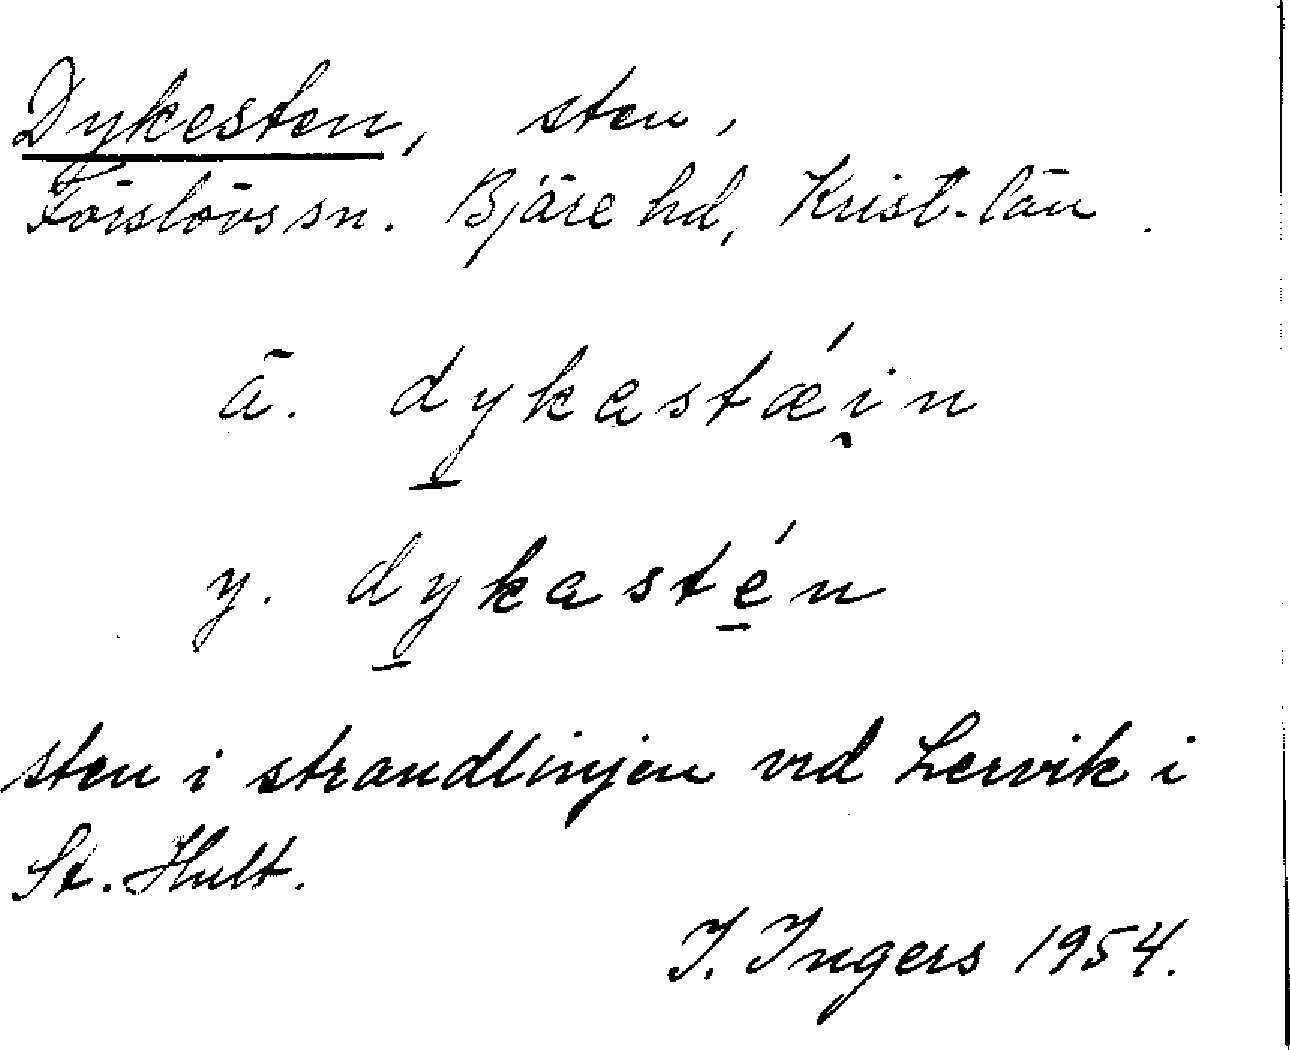 Dykesten, sten,
Förslövs sn. Bjäre hd, Krist. län.
ä. dykastǽi̯n
y. dykastén
sten i strandlinjen vid Lervik i
St. Hult.
I. Ingers 1954.